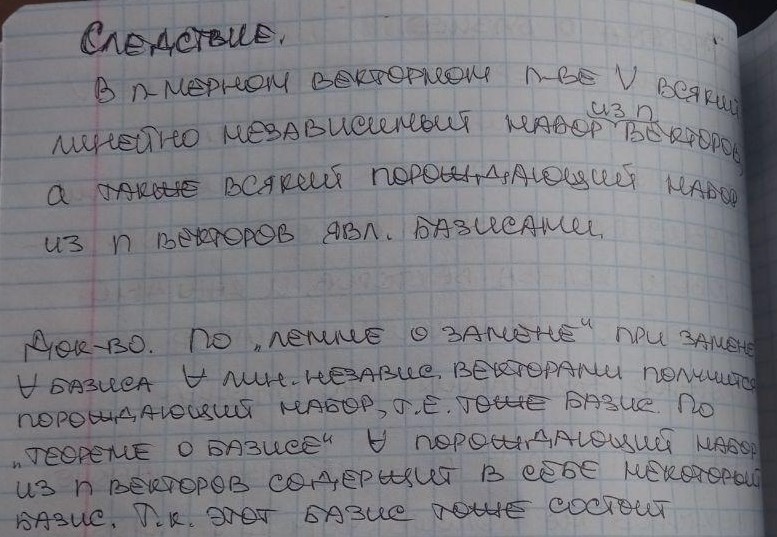 Следствие.
В n-мерном векторном п-ве V всякий
линейно независимый набор из n векторов,
а также всякий порождающий набор
из n векторов явл. базисами.
Док-во. По „лемме о замене“ при замене
∀ базиса ∀ лин. независ. векторами получится
порождающий набор, т.е. тоже базис. По
„теореме о базисе“ ∀ порождающий набор
из n векторов содержит в себе некоторый
базис. Т.к. этот базис тоже состоит